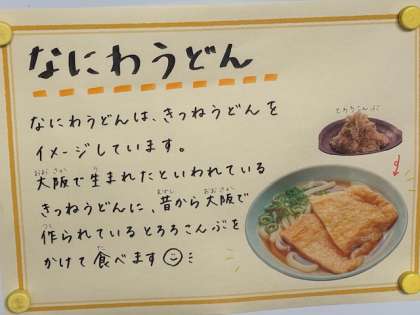 なにわうどん
なにわうどんは、きつねうどんを
イメージしています。
大阪で生まれたといわれている
きつねうどんに、昔から大阪で
作られているとろろこんぶを
かけて食べます
とろろこんぶ